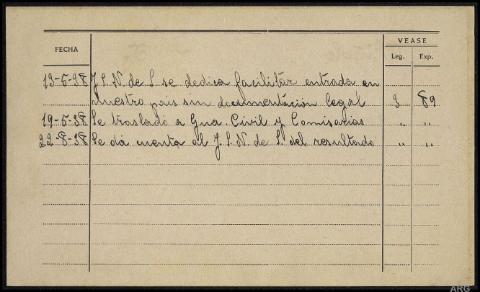 VEASE
FECHA Leg. Exp.
13-6-38 J.S.N. de S. se dedica facilitar entrada en
nuestro pais sin documentación legal 3 89
19-6-38 Se traslado a Gua. Civil y Comisarias " "
22-8-38 Se da cuenta al J.S.N. de S. del resultado " "
ARG